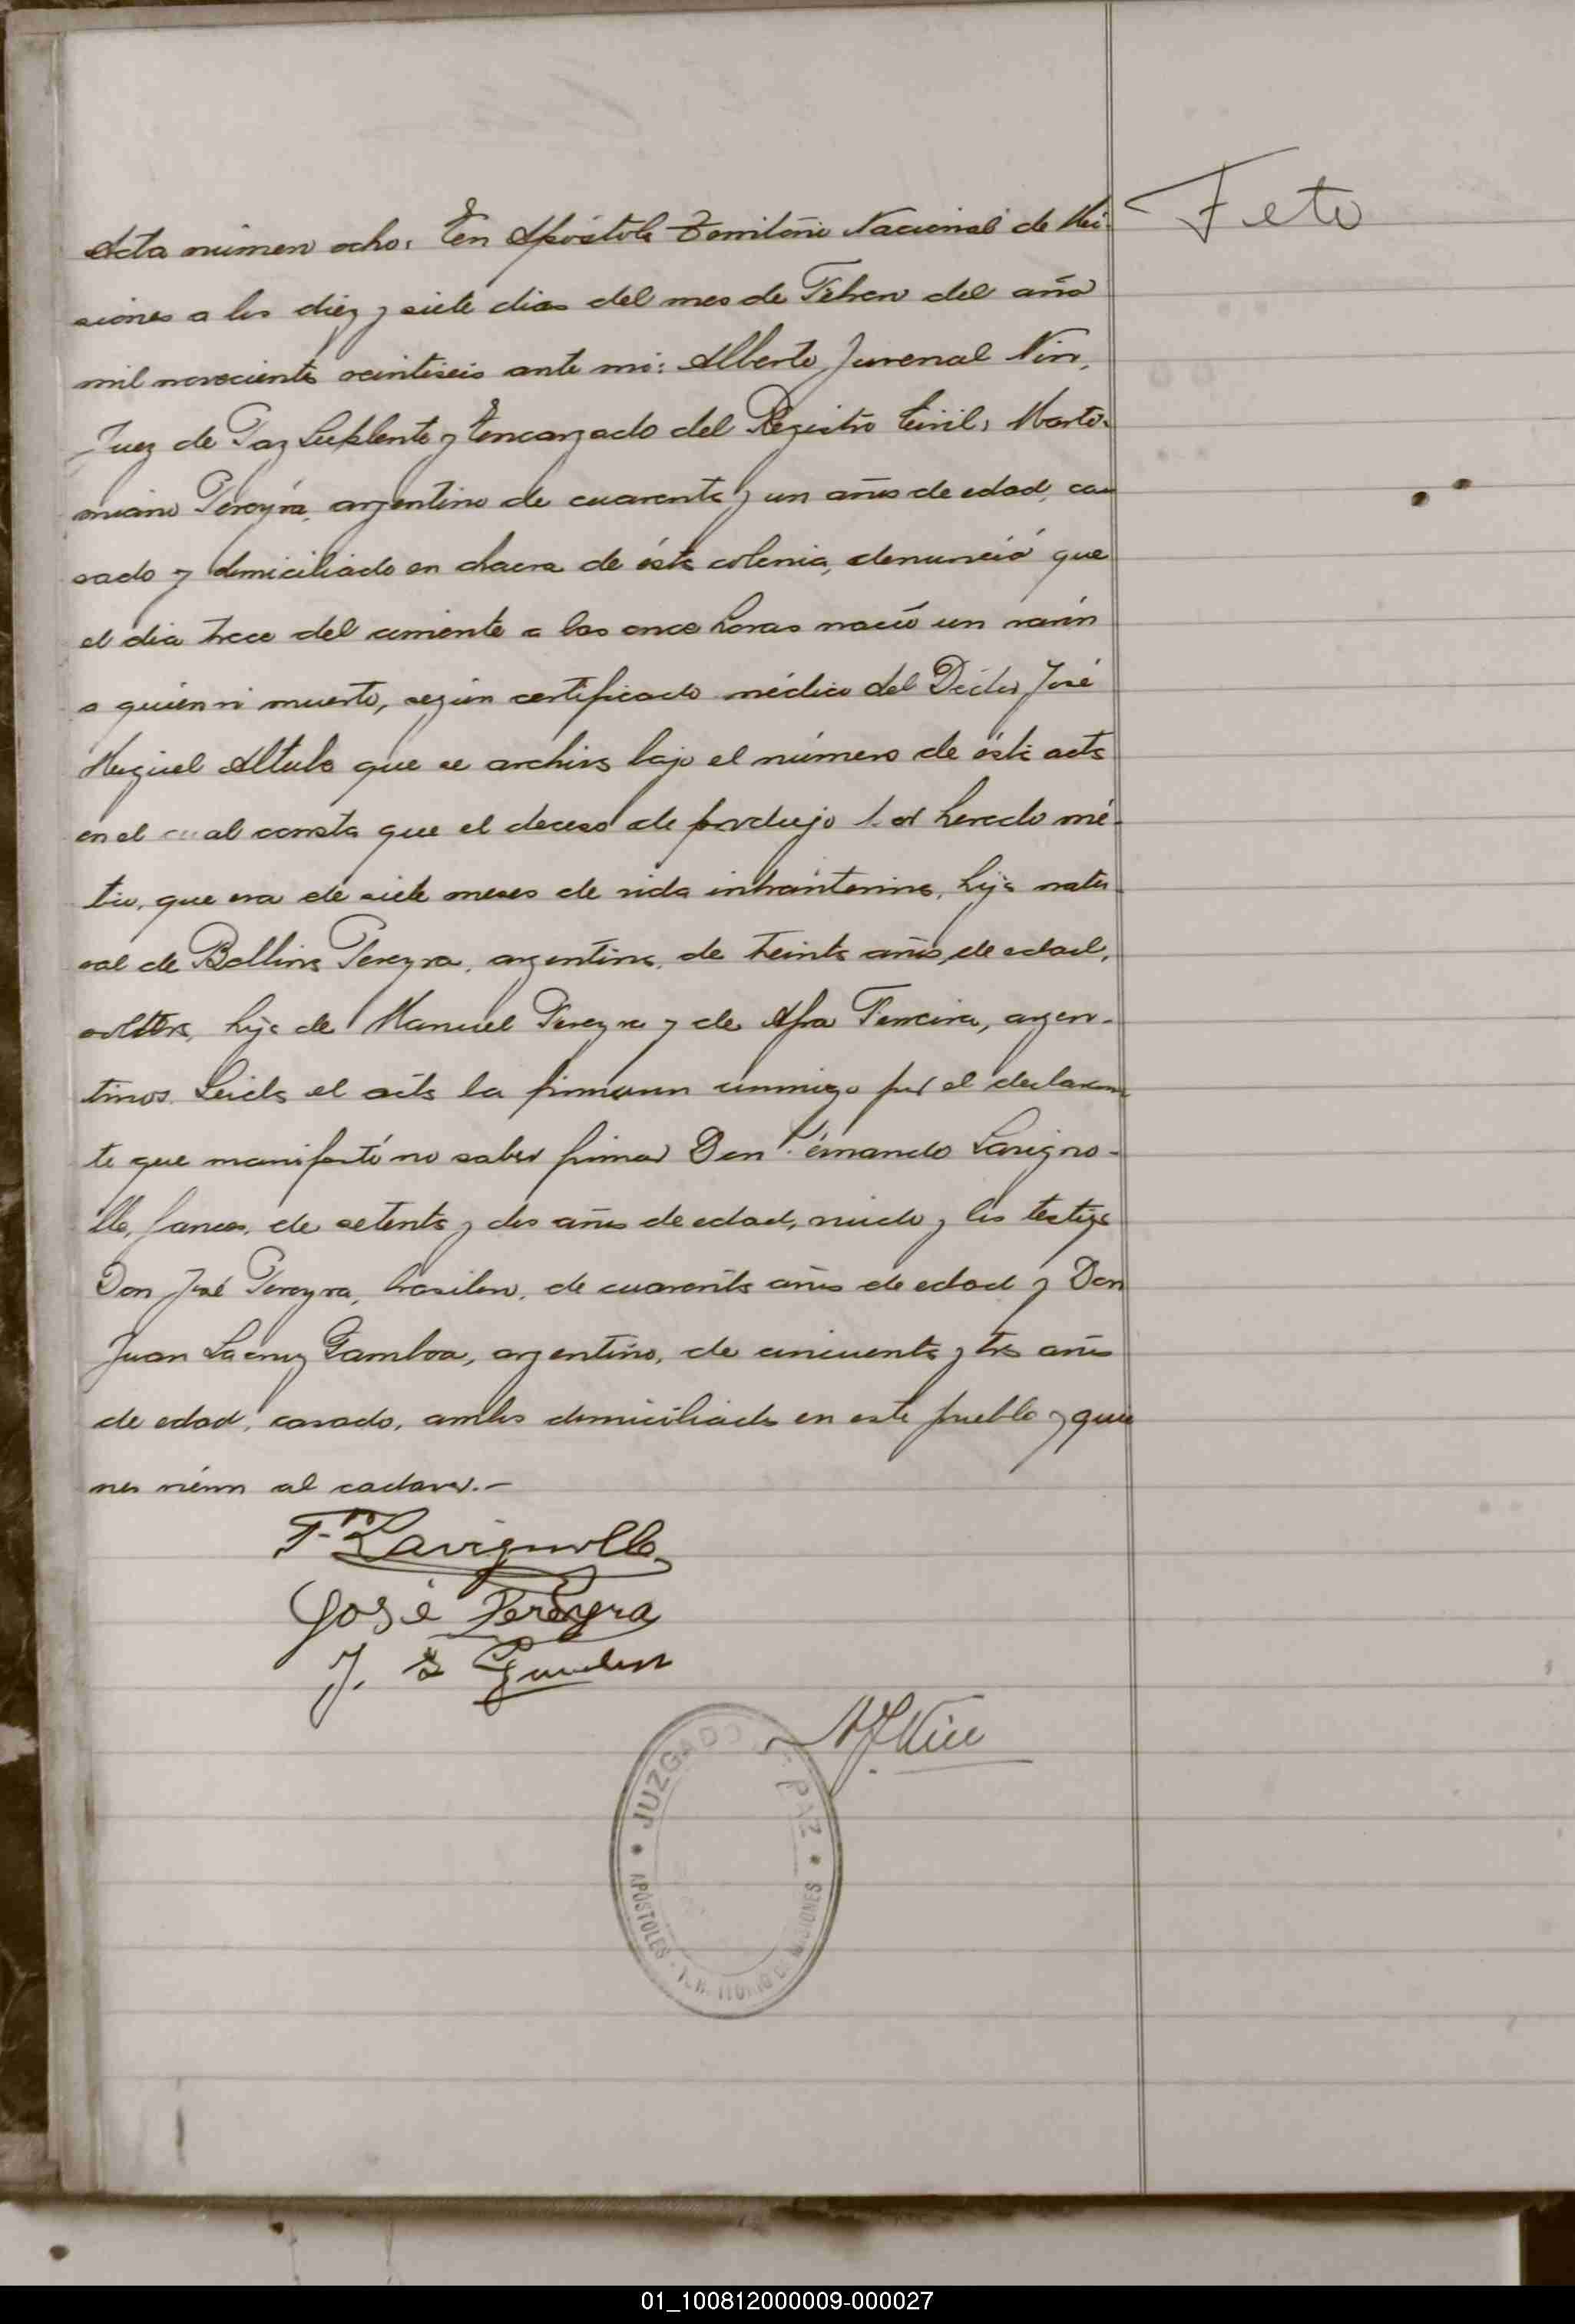 Feto
Acta número ocho: En Apóstoles Territorio Nacional de Mi-
siones a los diez y siete dias del mes de Febrero del año
mil novecientos veintiseis ante mi: Alberto Juvenal Nin,
Juez de Paz Suplente y Encargado del Registro Civil,
Pereyra, argentino de cuarenta y un años de edad, ca-
sado y domiciliado en chacra de ésta colonia, denunció que
el dia trece del corriente a las once horas nació un varón
a quien vi muerto, según certificado médico del Doctor José
Miguel que se archiva bajo el número de ésta acta
en el cual consta que el deceso se produjo por heredo
que era de siete meses de vida intrauterina, hijo natu-
ral de Pereyra, argentina, de treinta años de edad,
soltera, hija de Manuel Pereyra y de Afra Ferreira, argen-
tinos. Leida el acta la firmaron conmigo por el declaran-
te que manifestó no saber firmar Don Lavigno-
lle, frances, de setenta y dos años de edad, viudo y los testigos
Don José Pereyra, brasilero, de cuarenta años de edad y Don
Juan Lacruz Gamboa, argentino, de cincuenta y tres años
de edad, casado, ambos domiciliados en este pueblo y quie
nes vieron al cadaver.-
F. Lavignolle
José Pereyra
J. L
A J Nin
JUZGADO DE PAZ
APÓSTOLES - TERRITORIO DE MISIONES
01_100812000009-000027